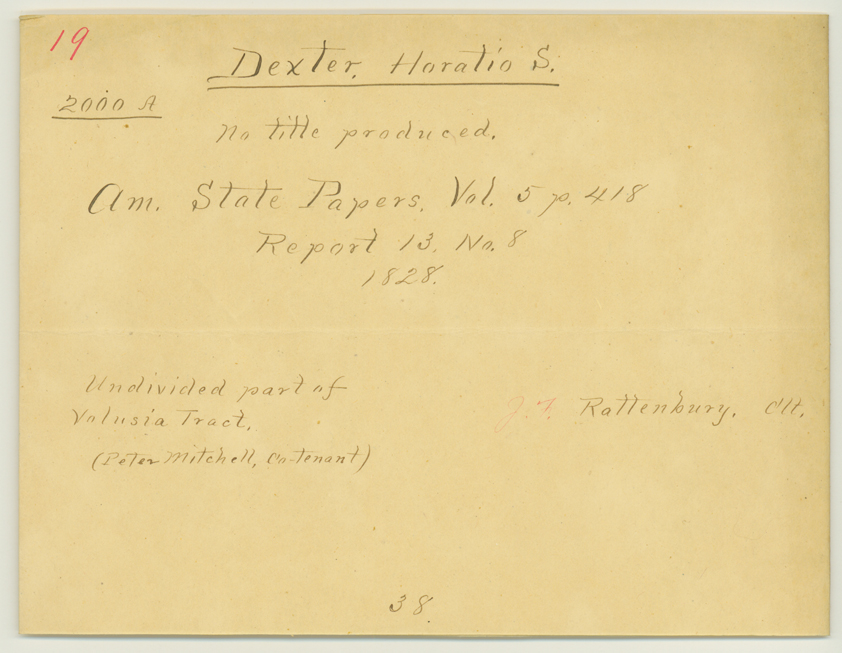 19
Dexter, Horatio S.
2000 A
No title produced.
Am. State Papers, Vol. 5 p. 418
Report 13, No. 8
1828.
Undivided part of
Volusia Tract.
J. F. Rattenbury, Att.
(Peter Mitchell, Co-tenant)
38